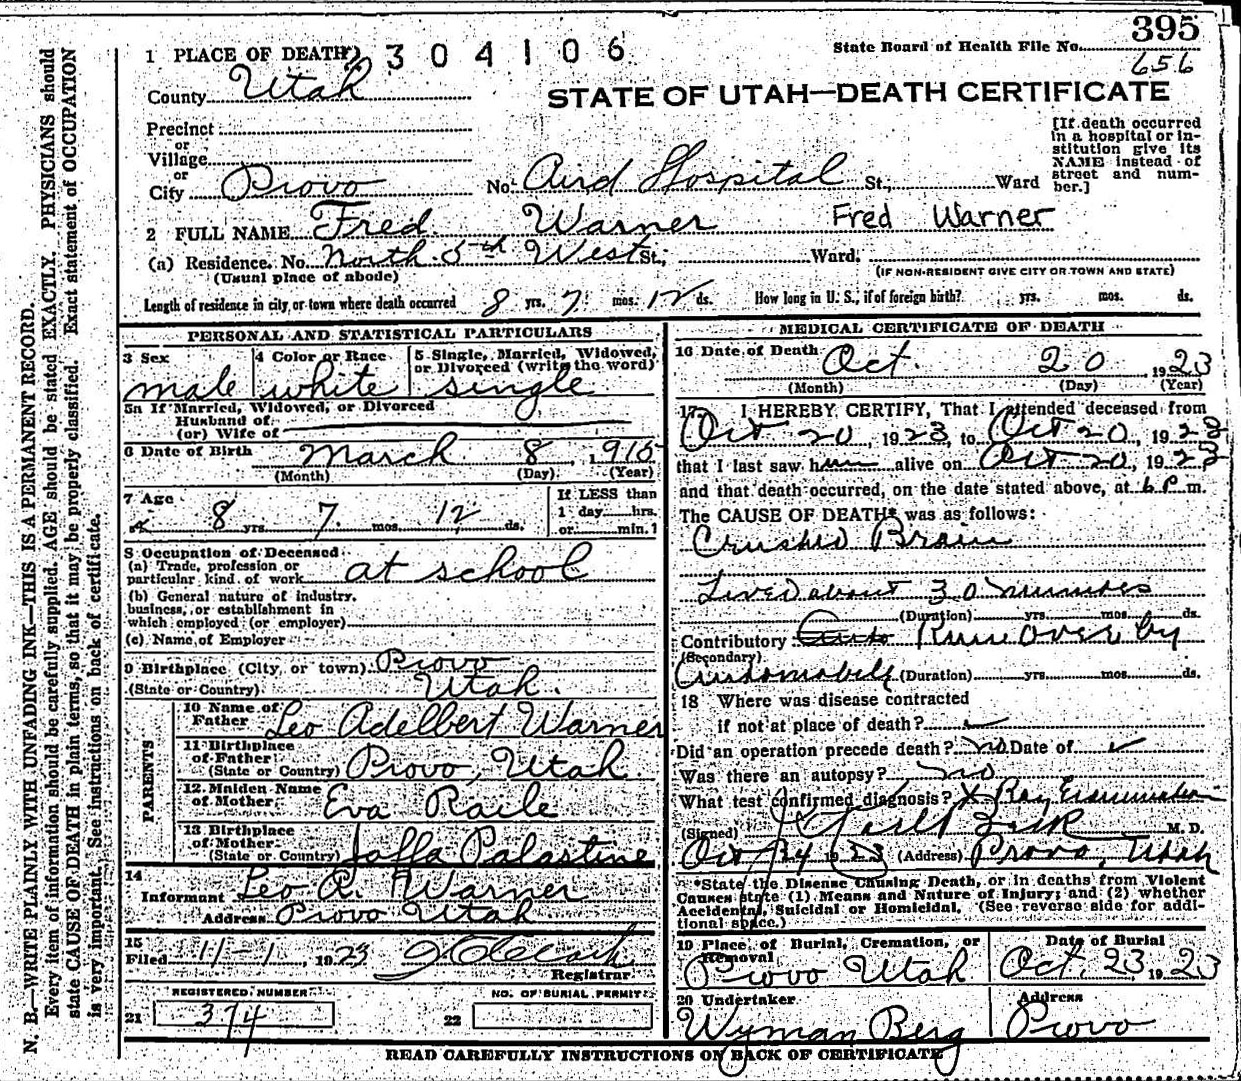 395
1 PLACE OF DEATH 304106 State Board of Health File No.
656
County Utah
STATE OF UTAH—DEATH CERTIFICATE
Precinct
or
Village
or
City Provo No. Aird Hospital St., Ward
[If death occurred
in a hospital or in-
stitution give its
NAME instead of
street and num-
ber.]
2 FULL NAME Fred Warner Fred Warner
(a) Residence. No. North 5th West St., Ward.
(Usual place of abode) (IF NON-RESIDENT GIVE CITY OR TOWN AND STATE)
Length of residence in city or town where death occurred 8 yrs. 7 mos. 12 ds. How long in U. S., if of foreign birth? yrs. mos. ds.
PERSONAL AND STATISTICAL PARTICULARS
3 Sex
male
4 Color or Race
white
5 Single, Married, Widowed,
or Divorced (write the word)
single
5a If Married, Widowed, or Divorced
Husband of
(or) Wife of
6 Date of Birth March 8, 1915
(Month) (Day) (Year)
7 Age
8 yrs. 7 mos. 12 ds.
If LESS than
1 day hrs.
or min.
8 Occupation of Deceased
(a) Trade, profession or
particular kind of work at school
(b) General nature of industry,
business, or establishment in
which employed (or employer)
(c) Name of Employer
9 Birthplace (City, or town) Provo
(State or Country) Utah.
PARENTS
10 Name of
Father Leo Adelbert Warner
11 Birthplace
of Father
(State or Country) Provo, Utah.
12 Maiden Name
of Mother Eva Raile
13 Birthplace
of Mother
(State or Country) Jaffa Palastine
14
Informant Leo A. Warner
Address Provo Utah
15
Filed 11-1, 1923
Registrar
REGISTERED NUMBER
21 374
NO. OF BURIAL PERMIT
22
MEDICAL CERTIFICATE OF DEATH
16 Date of Death Oct. 20, 1923
(Month) (Day) (Year)
17 I HEREBY CERTIFY, That I attended deceased from
Oct 20, 1923, to Oct 20, 1923
that I last saw him alive on Oct 20, 1923
and that death occurred, on the date stated above, at 6 P. m.
The CAUSE OF DEATH* was as follows:
Crushed Brain
Lived about 30 minutes
(Duration) yrs. mos. ds.
Contributory Auto Run over by
(Secondary)
Automobile (Duration) yrs. mos. ds.
18 Where was disease contracted
if not at place of death?
Did an operation precede death? no Date of
Was there an autopsy? no
What test confirmed diagnosis? X Ray Examination
(Signed) M. D.
Oct 24 1923 (Address) Provo, Utah
*State the Disease Causing Death, or in deaths from Violent
Causes state (1) Means and Nature of Injury; and (2) whether
Accidental, Suicidal or Homicidal. (See reverse side for addi-
tional space.)
19 Place of Burial, Cremation, or
Removal
Provo Utah
Date of Burial
Oct. 23 1923
20 Undertaker
Wyman Berg
Address
Provo
READ CAREFULLY INSTRUCTIONS ON BACK OF CERTIFICATE
N. B.—WRITE PLAINLY WITH UNFADING INK—THIS IS A PERMANENT RECORD.
Every item of information should be carefully supplied. AGE should be stated EXACTLY. PHYSICIANS should
state CAUSE OF DEATH in plain terms, so that it may be properly classified. Exact statement of OCCUPATION
is very important. See instructions on back of certificate.